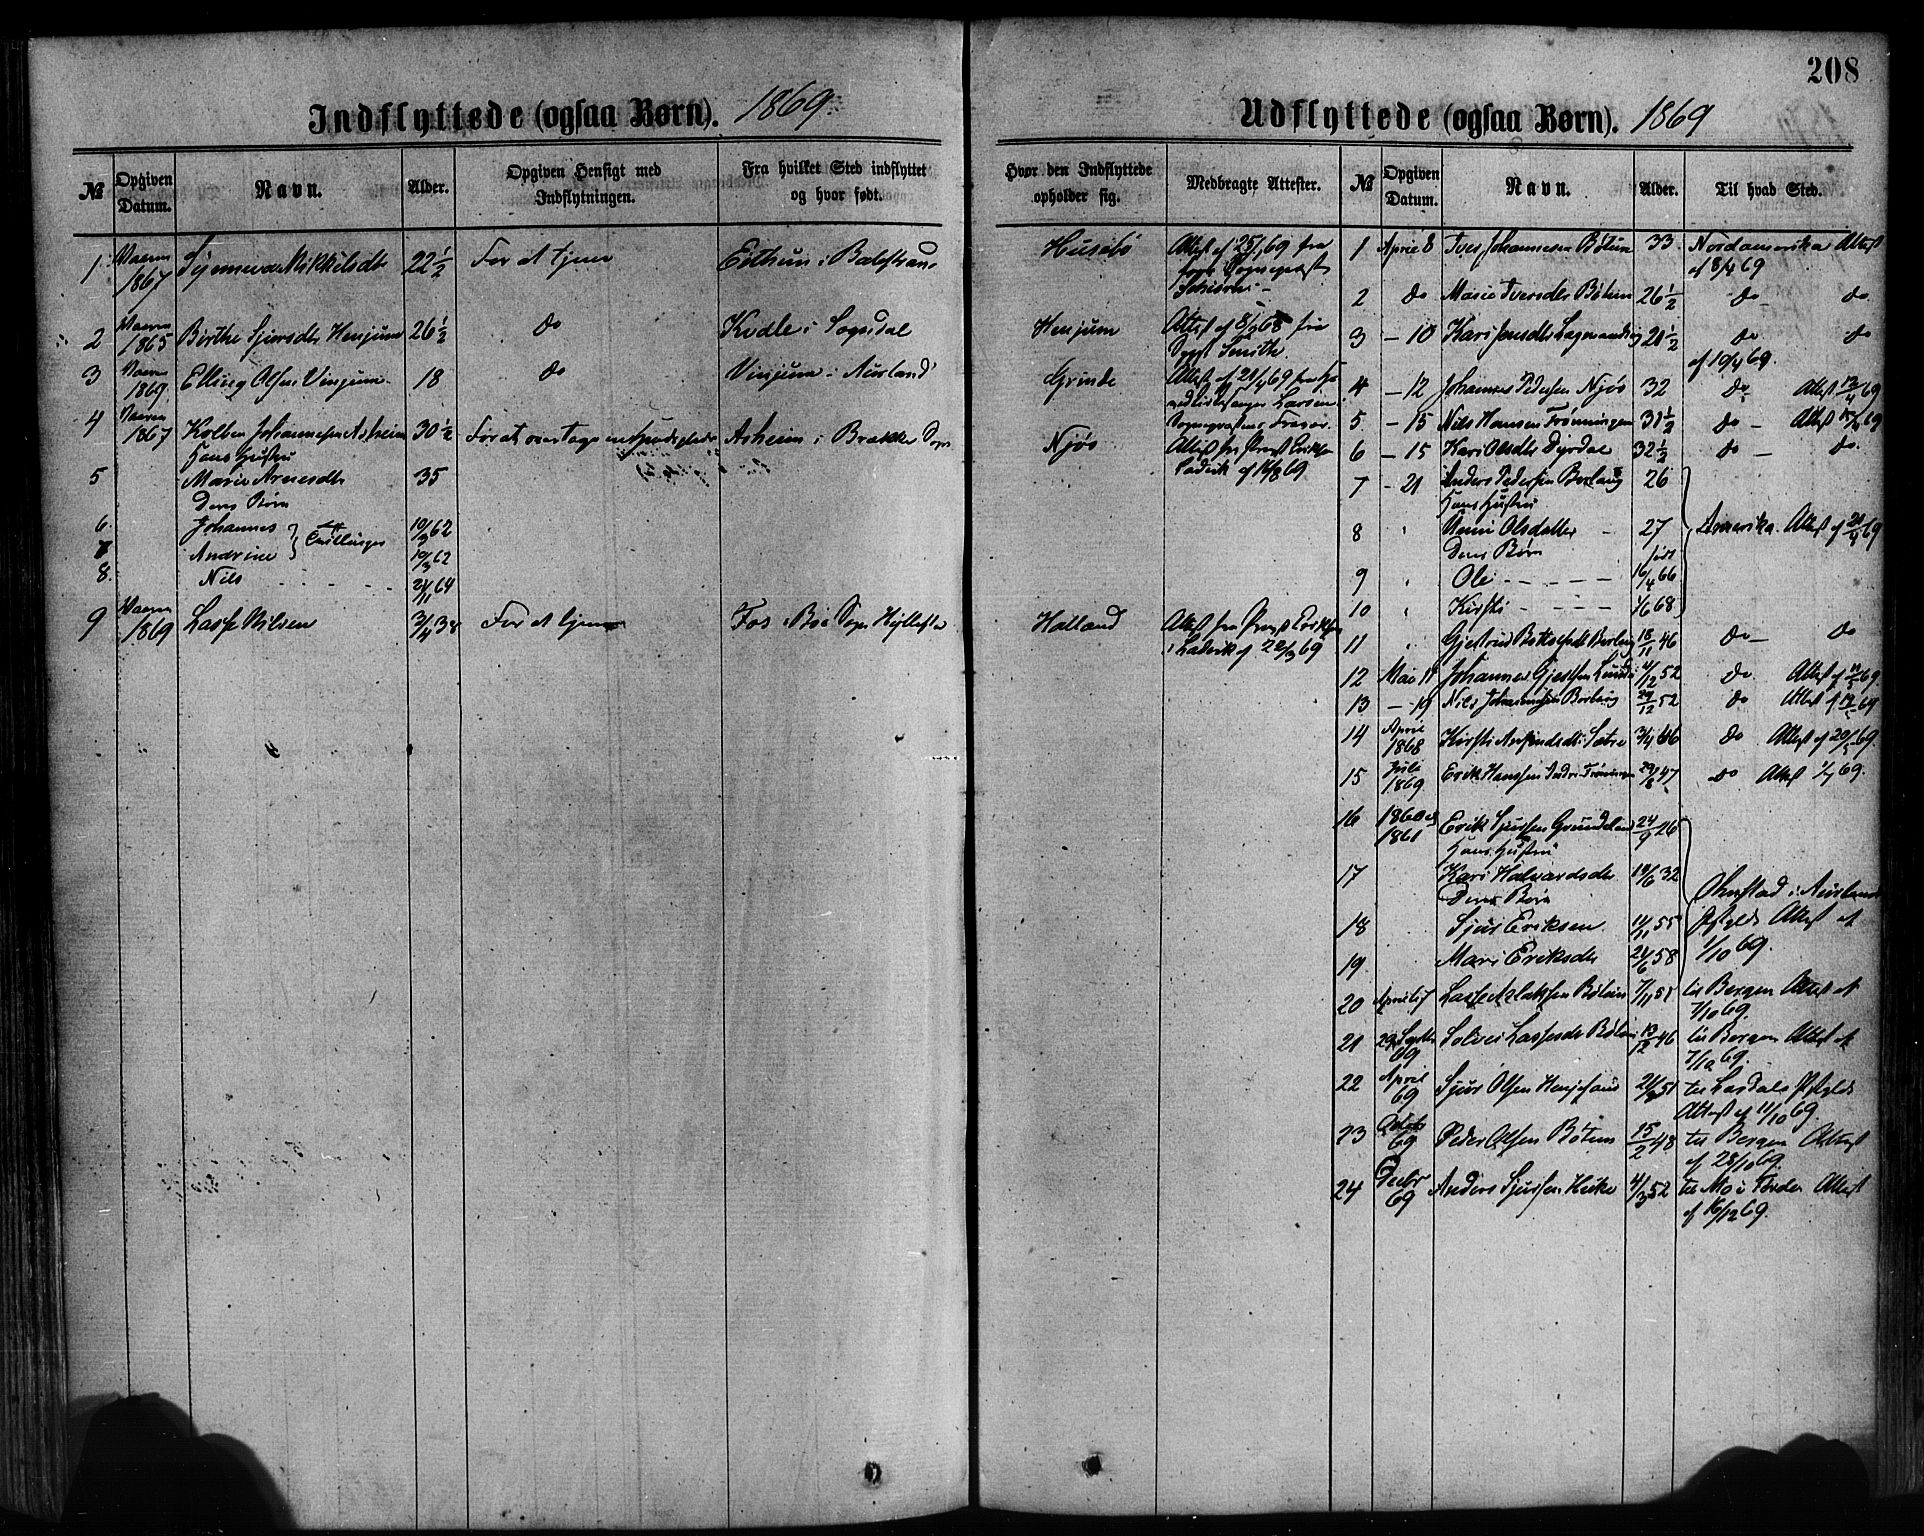 208
Indflyttede (ogsaa Børn). 1869.
№ Opgiven Datum. Navn. Alder. Opgiven Hensigt med Indflytningen. Fra hvilket Sted indflyttet og hvor født. Hvor den Indflyttede opholder sig. Medbragte Attester.
1 Vaaren 1867 Synneva Mikkelsdtr 22½ For at tjene i Balestrand Husebø Attest af 25/1 69 fra
2 Vaaren 1865 Birthe Sjursdtr Henjum 26½ do Kvaale i Sogndal Henjum Attest af 68 fra
Smith
3 Vaaren 1869 Elling Olsen Vinjum 18 do Vinjum i Aurland Grinde Attest af 21/4 69 fra
Larsen
4 Vaaren 1867 Kolben Johannesen Asheim 30½ For at overtage Asheim i Brække Sogn Njøs Attest fra Præst
Hans Hustru
Ladvik af 16/8 69
5 Marie Arnesdtr 35
Deres Børn
6 Johannes 10/3 62
7 Andrine 10/3 62
Tvillinger
8. Nils 64
9 Vaaren 1869 Lasse Nilsen 3/4 38 For at tjene Fos i Bø Sogn Hyllestad Halland Attest fra Præst
i Ladvik af 22/3 69
Udflyttede (ogsaa Børn). 1869
№ Opgiven Datum. Navn. Alder. Til hvad Sted.
1 April 8 Iver Johannesen Bøtun 33 Nordamerika Attest
af 8/4 69
2 do Marie Iversdtr Bøtun 26½ do do
3 - 10 Kari Jensdtr 21½ do do
af 10/4 69.
4 - 12 Johannes Pedersen Njøs 32 do Attest 12/4 69
5 - 15 Nils Hansen Frønningen 31½ do - Attest 15/4 69
6 - 15 Kari Olsdtr Dyrdal 32½ do - do.
7 - 21 Anders Pedersen Berlaug 26
Hans Hustru
8 " Olsdatter 27 Amerika. Attest af 21/4 69
Deres Børn født
9 " Ole 16/4 66
10 " Kirsti 1/6 68
11 " Gjertrud 18/11 46 do - do
12 Mai 11 Johannes Gjertsen 4/12 52 do Attest af 69
13 - 19 Nils Johannesen Berlaug 29/12 52 do Attest af 69
14 April 1868 Kirsti Sætre 3/4 46 do Attest af 20/5 69.
15 Juli 1869 Erik Hanssen Indre Frønningen 29/8 47 do Attest 1/7 69.
16 1860 og 1861 Erik Sjursen 24/9 26
Hans Hustru
17 Kari Halvardsdtr 19/6 32
Deres Børn
i Aurlands
18 Sjur Eriksen 14/11 55 Attest af
19 Mari Eriksdtr 24/6 58 1/10 69.
20 April 67 Lasse Aslaksen Bøtun 7/11 51 til Bergen Attest af
7/10 69.
21 29 Septbr 69 Solvei Lassesdtr Bøtun 13/12 46 til Bergen Attest af
7/10 69.
22 April 69 Sjur Olsen 51 til Lærdals Præstgjeld
Attest af 11/10 69
23 Octobr 69 Peder Olsen Bøtun 25/2 48 til Bergen Attest
af 28/10 69.
24 Decbr 69 Anders Sjursen 4/3 52 til Mo i Førde Attest
af 16/12 69.